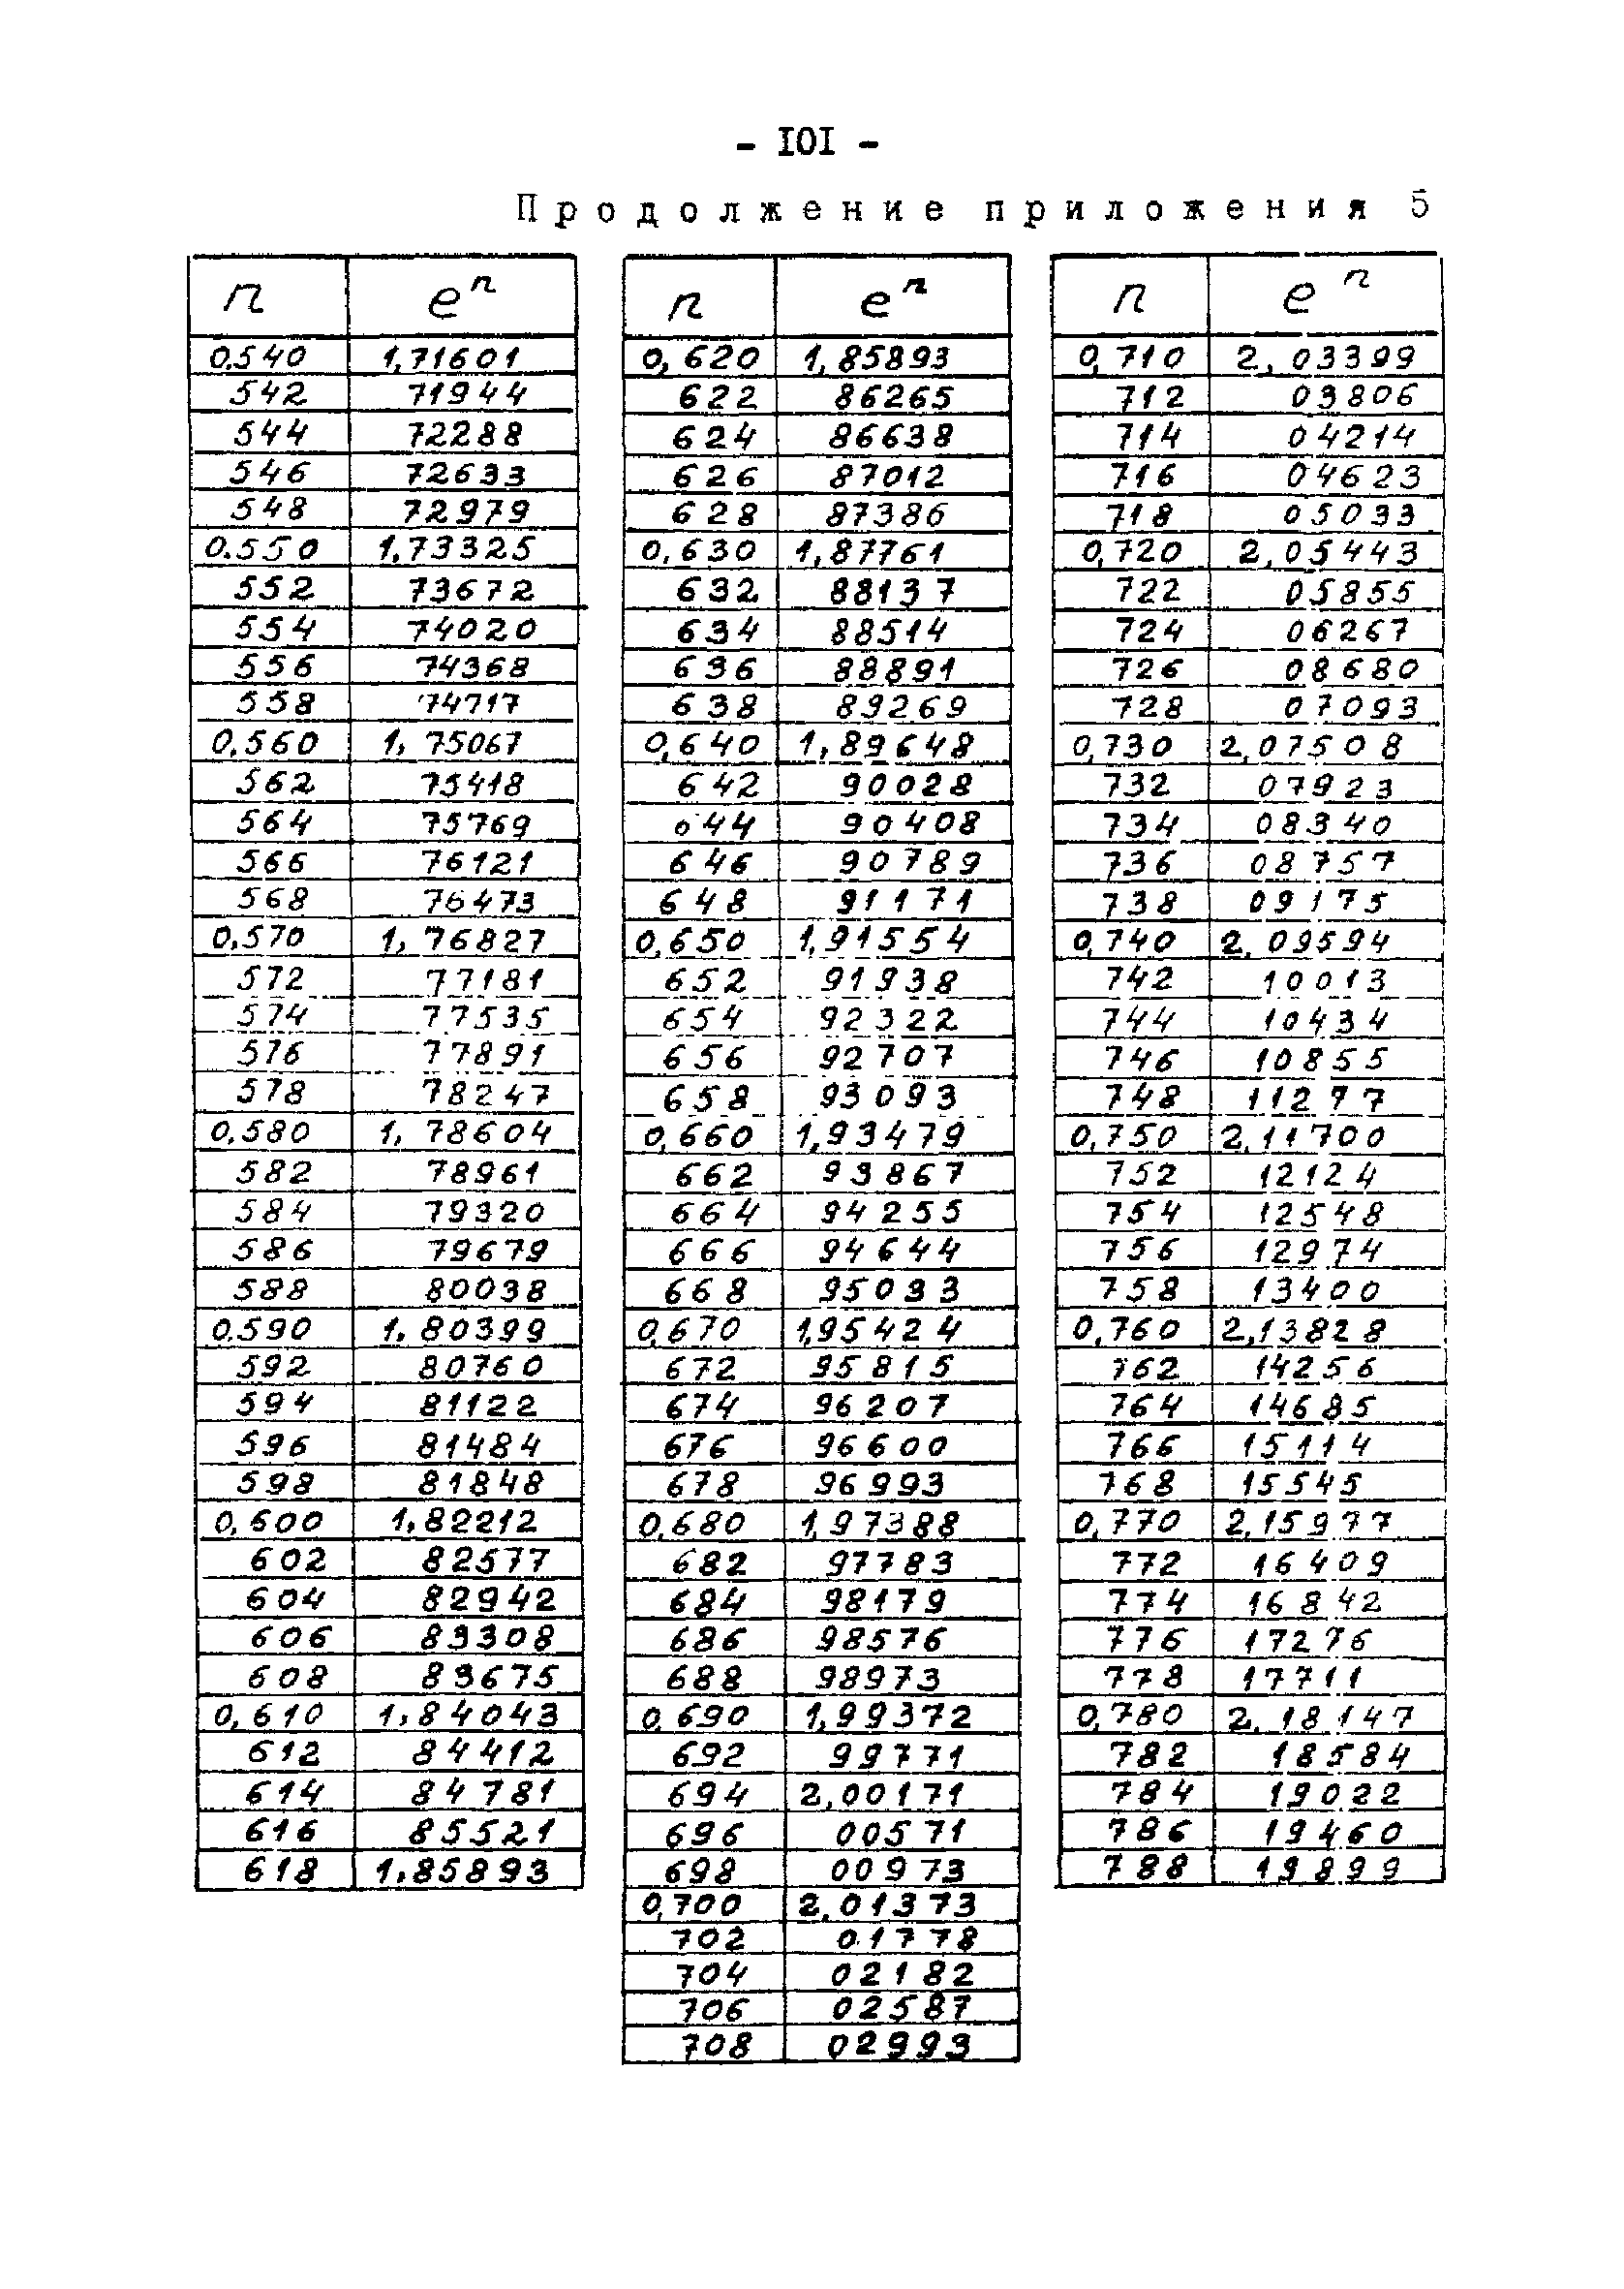 - IOI -
Продолжение приложения 5
n eⁿ
0.540 1,71601
542 71944
544 72288
546 72633
548 72979
0.550 1,73325
552 73672
554 74020
556 74368
558 74717
0,560 1, 75067
562 75418
564 75769
566 76121
568 76473
0,570 1, 76827
572 77181
574 77535
576 77891
578 78247
0,580 1, 78604
582 78961
584 79320
586 79679
588 80038
0.590 1. 80399
592 80760
594 81122
596 81484
598 81848
0,600 1,82212
602 82577
604 82942
606 83308
608 83675
0,610 1,84043
612 84412
614 84781
616 85521
618 1.85893
n eⁿ
0,620 1,85893
622 86265
624 86638
626 87012
628 87386
0,630 1,87761
632 88137
634 88514
636 88891
638 89269
0,640 1,89648
642 90028
644 90408
646 90789
648 91171
0,650 1,91554
652 91938
654 92322
656 92707
658 93093
0,660 1,93479
662 93867
664 94255
666 94644
668 95033
0,670 1,95424
672 95815
674 96207
676 96600
678 96993
0,680 1,97388
682 97783
684 98179
686 98576
688 98973
0,690 1,99372
692 99771
694 2,00171
696 00571
698 00973
0,700 2.01373
702 01778
704 02182
706 02587
708 02993
n eⁿ
0,710 2,03399
712 03806
714 04214
716 04623
718 05033
0,720 2,05443
722 05855
724 06267
726 08680
728 07093
0,730 2,07508
732 07923
734 08340
736 08757
738 09175
0,740 2,09594
742 10013
744 10434
746 10855
748 11277
0,750 2,11700
752 12124
754 12548
756 12974
758 13400
0,760 2,13828
762 14256
764 14685
766 15114
768 15545
0,770 2,15977
772 16409
774 16842
776 17276
778 17711
0,780 2. 18147
782 18584
784 19022
786 19460
788 19899